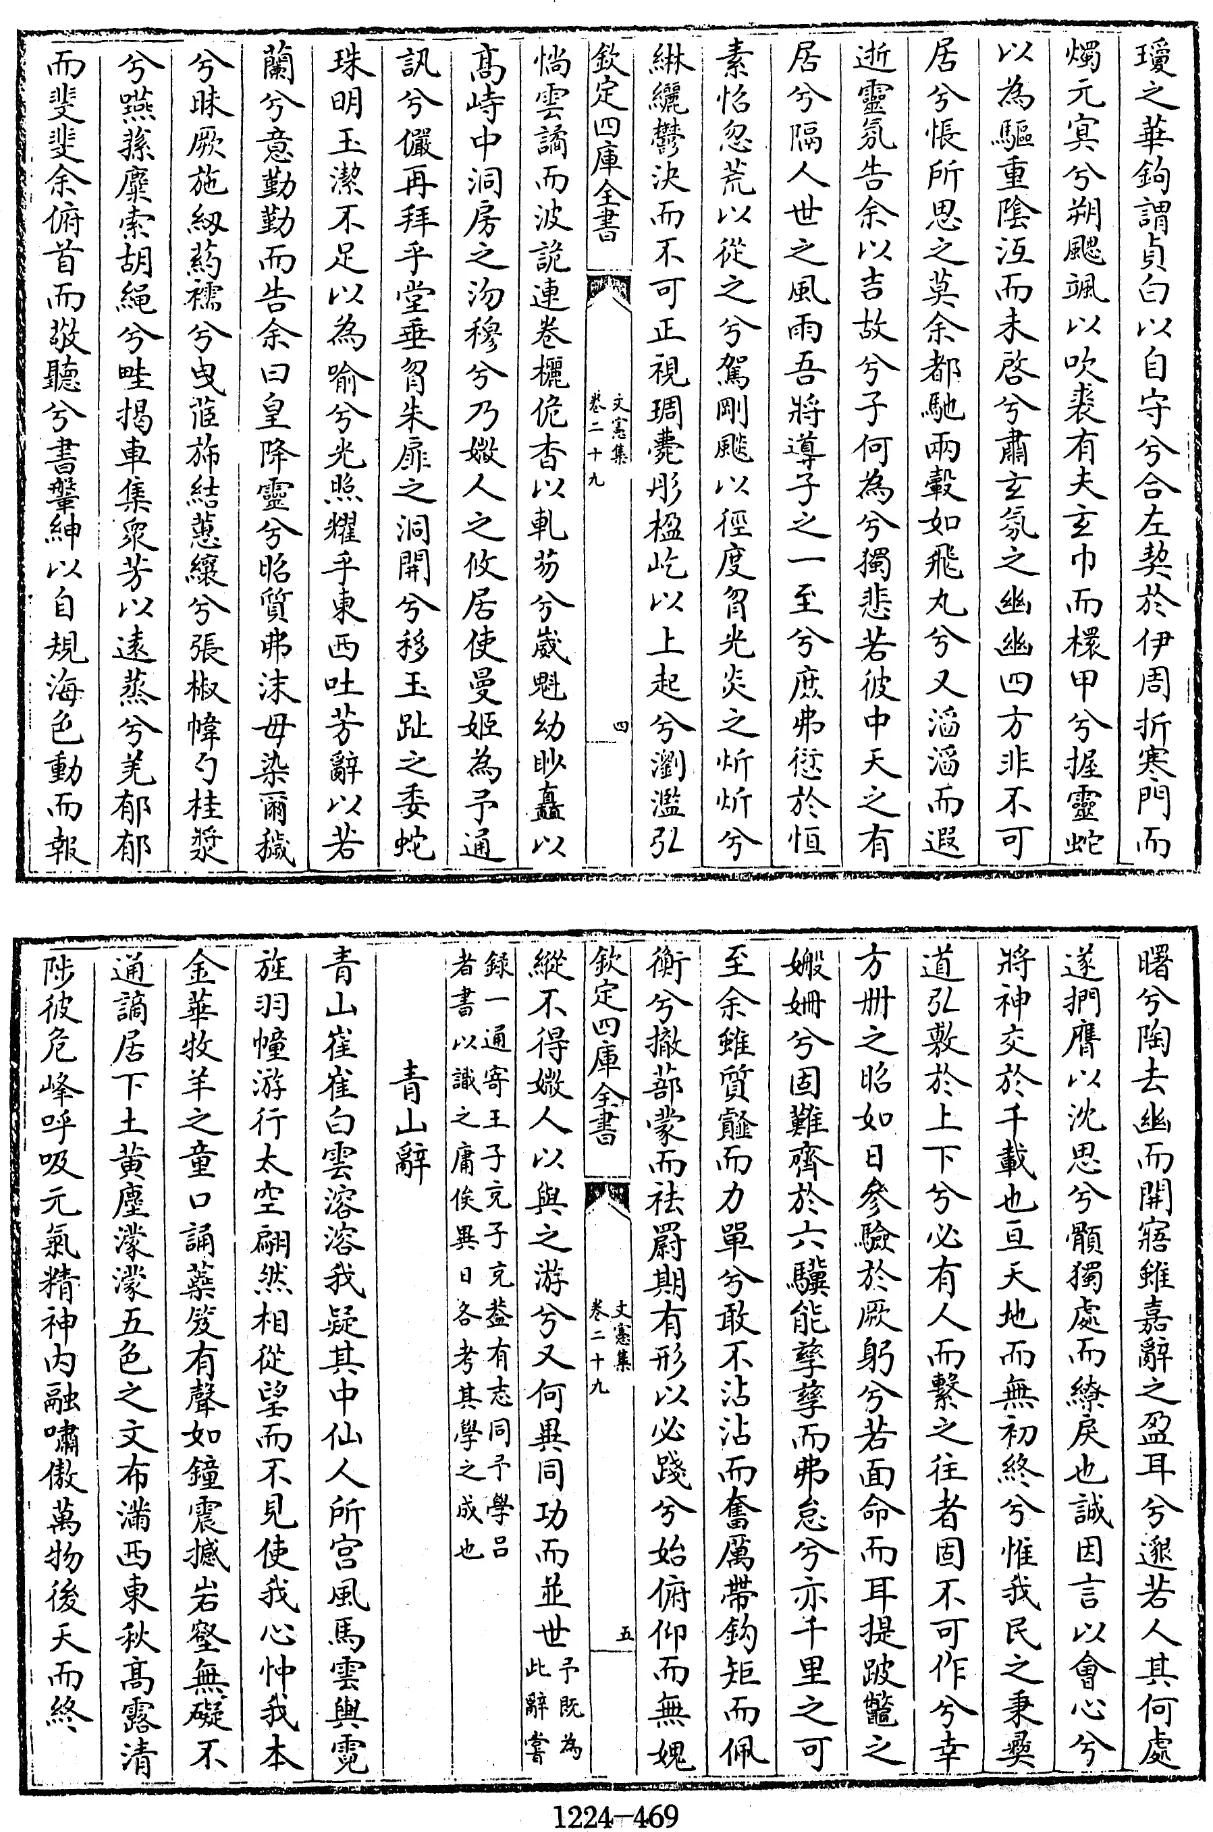 瓊之華鉤謂貞白以自守兮合左契於伊周折寒門而
燭元㝠兮朔颸颯以吹裘有夫玄巾而檈甲兮握靈蛇
以為驅重陰沍而未啓兮肅玄氛之幽幽四方非不可
居兮悵所思之莫余都馳兩轂如飛丸兮又滔滔而遐
逝靈氛告余以吉故兮子何為兮獨悲若彼中天之有
居兮隔人世之風雨吾將導子之一至兮庶弗愆於恒
素怊忽荒以從之兮駕剛飈以徑度䏍光炎之炘炘兮
綝纚鬱泱而不可正視琱甍彤楹屹以上起兮瀏濫弘
欽定四庫全書
文憲集
卷二十九
四
惝雲譎而波詭連卷欐佹杳以軋芴兮嵗魁幼眇矗以
髙峙中洞房之沕穆兮乃媺人之攸居使曼姬為予通
訊兮儼再拜乎堂垂䏍朱扉之洞開兮移玉趾之委蛇
珠明玉潔不足以為喻兮光照耀乎東西吐芳辭以若
蘭兮意勤勤而告余曰皇降靈兮昭質弗沫毋染爾穢
兮昧厥施紉葯襦兮曳茝斾結蕙纕兮張椒幃勺桂漿
兮嚥蓀糜索胡繩兮畦揭車集衆芳以逺蒸兮羌郁郁
而斐斐余俯首而敬聽兮書鞶紳以自規海色動而報
曙兮陶去幽而開寤雖嘉辭之盈耳兮邈若人其何處
遂捫膺以沈思兮顝獨處而繚戾也誠因言以會心兮
將神交於千載也亘天地而無初終兮惟我民之秉彛
道弘敷於上下兮必有人而繫之往者固不可作兮幸
方冊之昭如日參驗於厥躬兮若面命而耳提跛鼈之
媻姍兮固難齊於六驥能孳孳而弗怠兮亦千里之可
至余雖質齷而力單兮敢不沾沾而奮厲帶鈎矩而佩
衡兮撤蔀蒙而袪罻期有形以必踐兮始俯仰而無媿
欽定四庫全書
文憲集
卷二十九
五
縱不得媺人以與之游兮又何異同功而並世予既為
此辭嘗
録一通寄王子充子充葢有志同予學吕
者書以識之庸俟異日各考其學之成也
青山辭
青山崔崔白雲溶溶我疑其中仙人所宫風馬雲輿霓
旌羽幢游行太空翩然相從望而不見使我心忡我本
金華牧羊之童口誦蘂笈有聲如鐘震撼岩壑無礙不
通謫居下土黄塵濛濛五色之文布滿西東秋髙露清
陟彼危峰呼吸元氣精神内融嘯傲萬物後天而終
1224-469